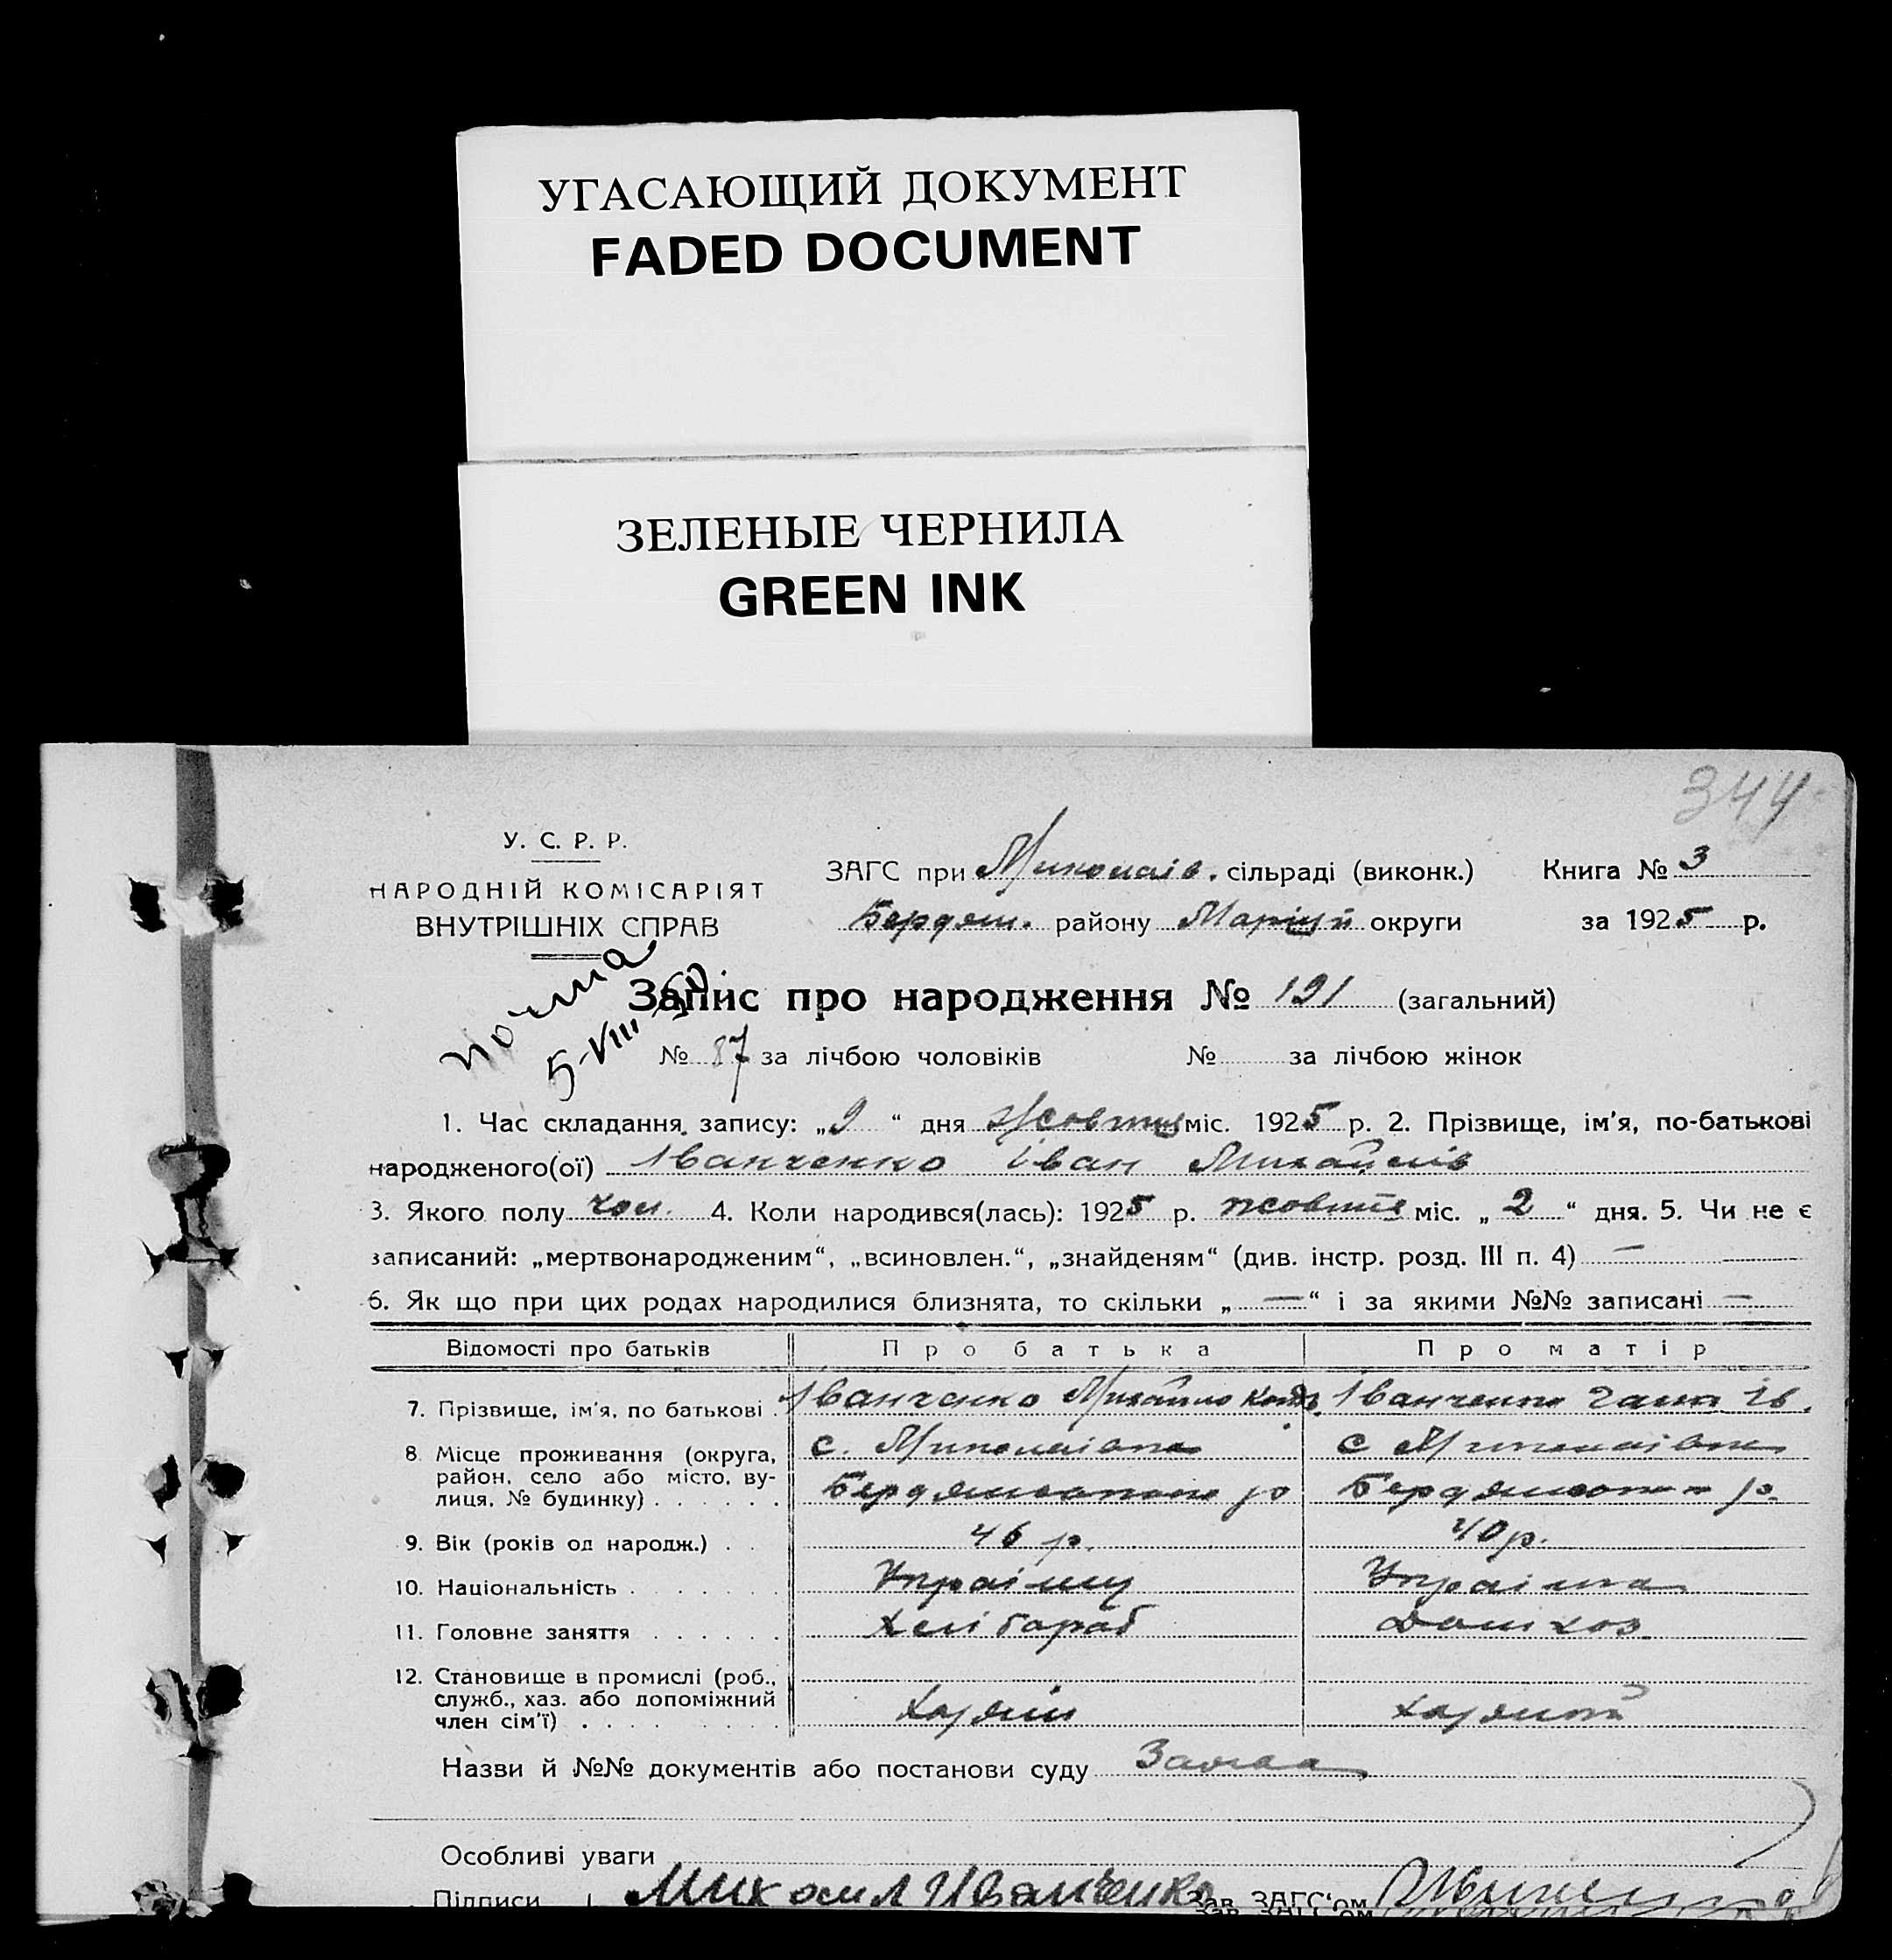 УГАСАЮЩИЙ ДОКУМЕНТ
FADED DOCUMENT
ЗЕЛЕНЫЕ ЧЕРНИЛА
GREEN INK
344
У. С. Р. Р.
НАРОДНІЙ КОМІСАРІЯТ
ВНУТРІШНІХ СПРАВ
ЗАГС при Миколаїв. сільраді (виконк.) Книга № 3
Бердян. району Маріуп округи за 1925 р.
5-VIII
Запис про народження № 191 (загальний)
№ 87 за лічбою чоловіків № за лічбою жінок
1. Час складання запису: „9“ дня Жовтня міс. 1925 р. 2. Прізвище, ім'я, по-батькові
народженого(ої) Іванченко Іван Михайлів
3. Якого полу чол. 4. Коли народився(лась): 1925 р. жовтня міс. „2“ дня. 5. Чи не є
записаний: „мертвонародженим“, „всиновлен.“, „знайденям“ (див. інстр. розд. III п. 4) —
6. Як що при цих родах народилися близнята, то скільки „—“ і за якими №№ записані —
Відомості про батьків Про батька Про матір
7. Прізвище, ім'я, по батькові . Іванченко Михайло Іванченко Ів.
8. Місце проживання (округа, с. Миколаівка с Миколаівка
район, село або місто, ву- Бердянського р Бердянського р.
лиця, № будинку) . . . . . .
9. Вік (років од народж.) . . 46 р. 40 р.
10. Національність . . . . . Украінец Украінка
11. Головне заняття . . . . . . Хлібороб Дом хоз.
12. Становище в промислі (роб.,
служб., хаз. або допоміжний Хазяін
член сім'ї) . . . . . . . .
Назви й №№ документів або постанови суду Заява
Особливі уваги
Підписи Михаил Иванченко Зав. ЗАГС'ом